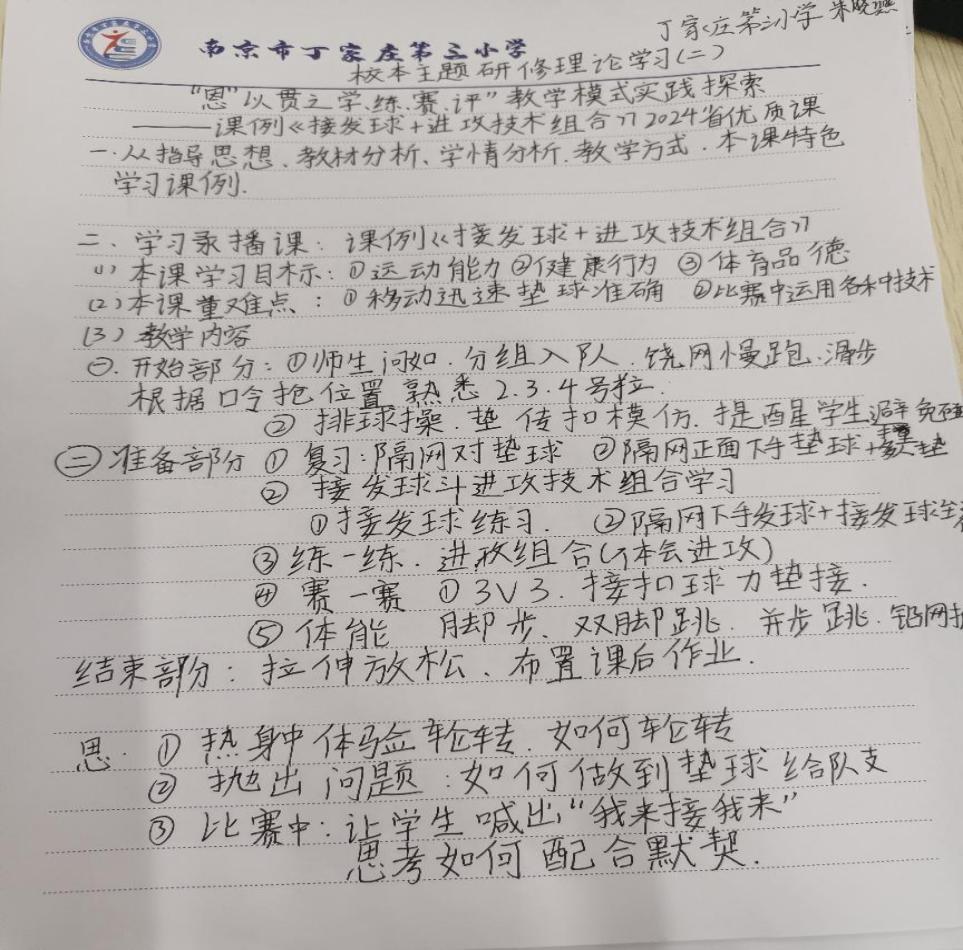 丁家庄第三小学 朱晓燕
南京市丁家庄第三小学
校本主题研修理论学习(二)
"思"以贯之学、练、赛、评"教学模式实践探索
——课例《接发球+进攻技术组合》2024省优质课
一.从指导思想、教材分析、学情分析.教学方式.本课特色
学习课例.
二、学习录播课:课例《接发球+进攻技术组合》
(1)本课学习目标:①运动能力②健康行为 ③体育品德
(2)本课重难点:①移动迅速垫球准确 ②比赛中运用各种技术
(3)教学内容
㊀.开始部分:①师生问好.分组入队.绕网慢跑.滑步
根据口令抢位置 熟悉2.3.4号位.
② 排球操.垫 传扣模仿.提醒学生避免碰
㊁准备部分 ① 复习:隔网对垫球 ②隔网正面下手垫球+
② 接发球+进攻技术组合学习
①接发球练习. ②隔网下手发球+接发球
③练一练.进攻组合(体会进攻)
④ 赛一赛 ①3V3.接扣球 力垫接.
⑤体能 脚步.双脚跳.并步跳.
结束部分:拉伸放松、布置课后作业.
思.①热身中体验轮转.如何轮转
② 抛出问题:如何做到垫球给队友
③ 比赛中:让学生喊出"我来接我来"
思考如何配合默契.